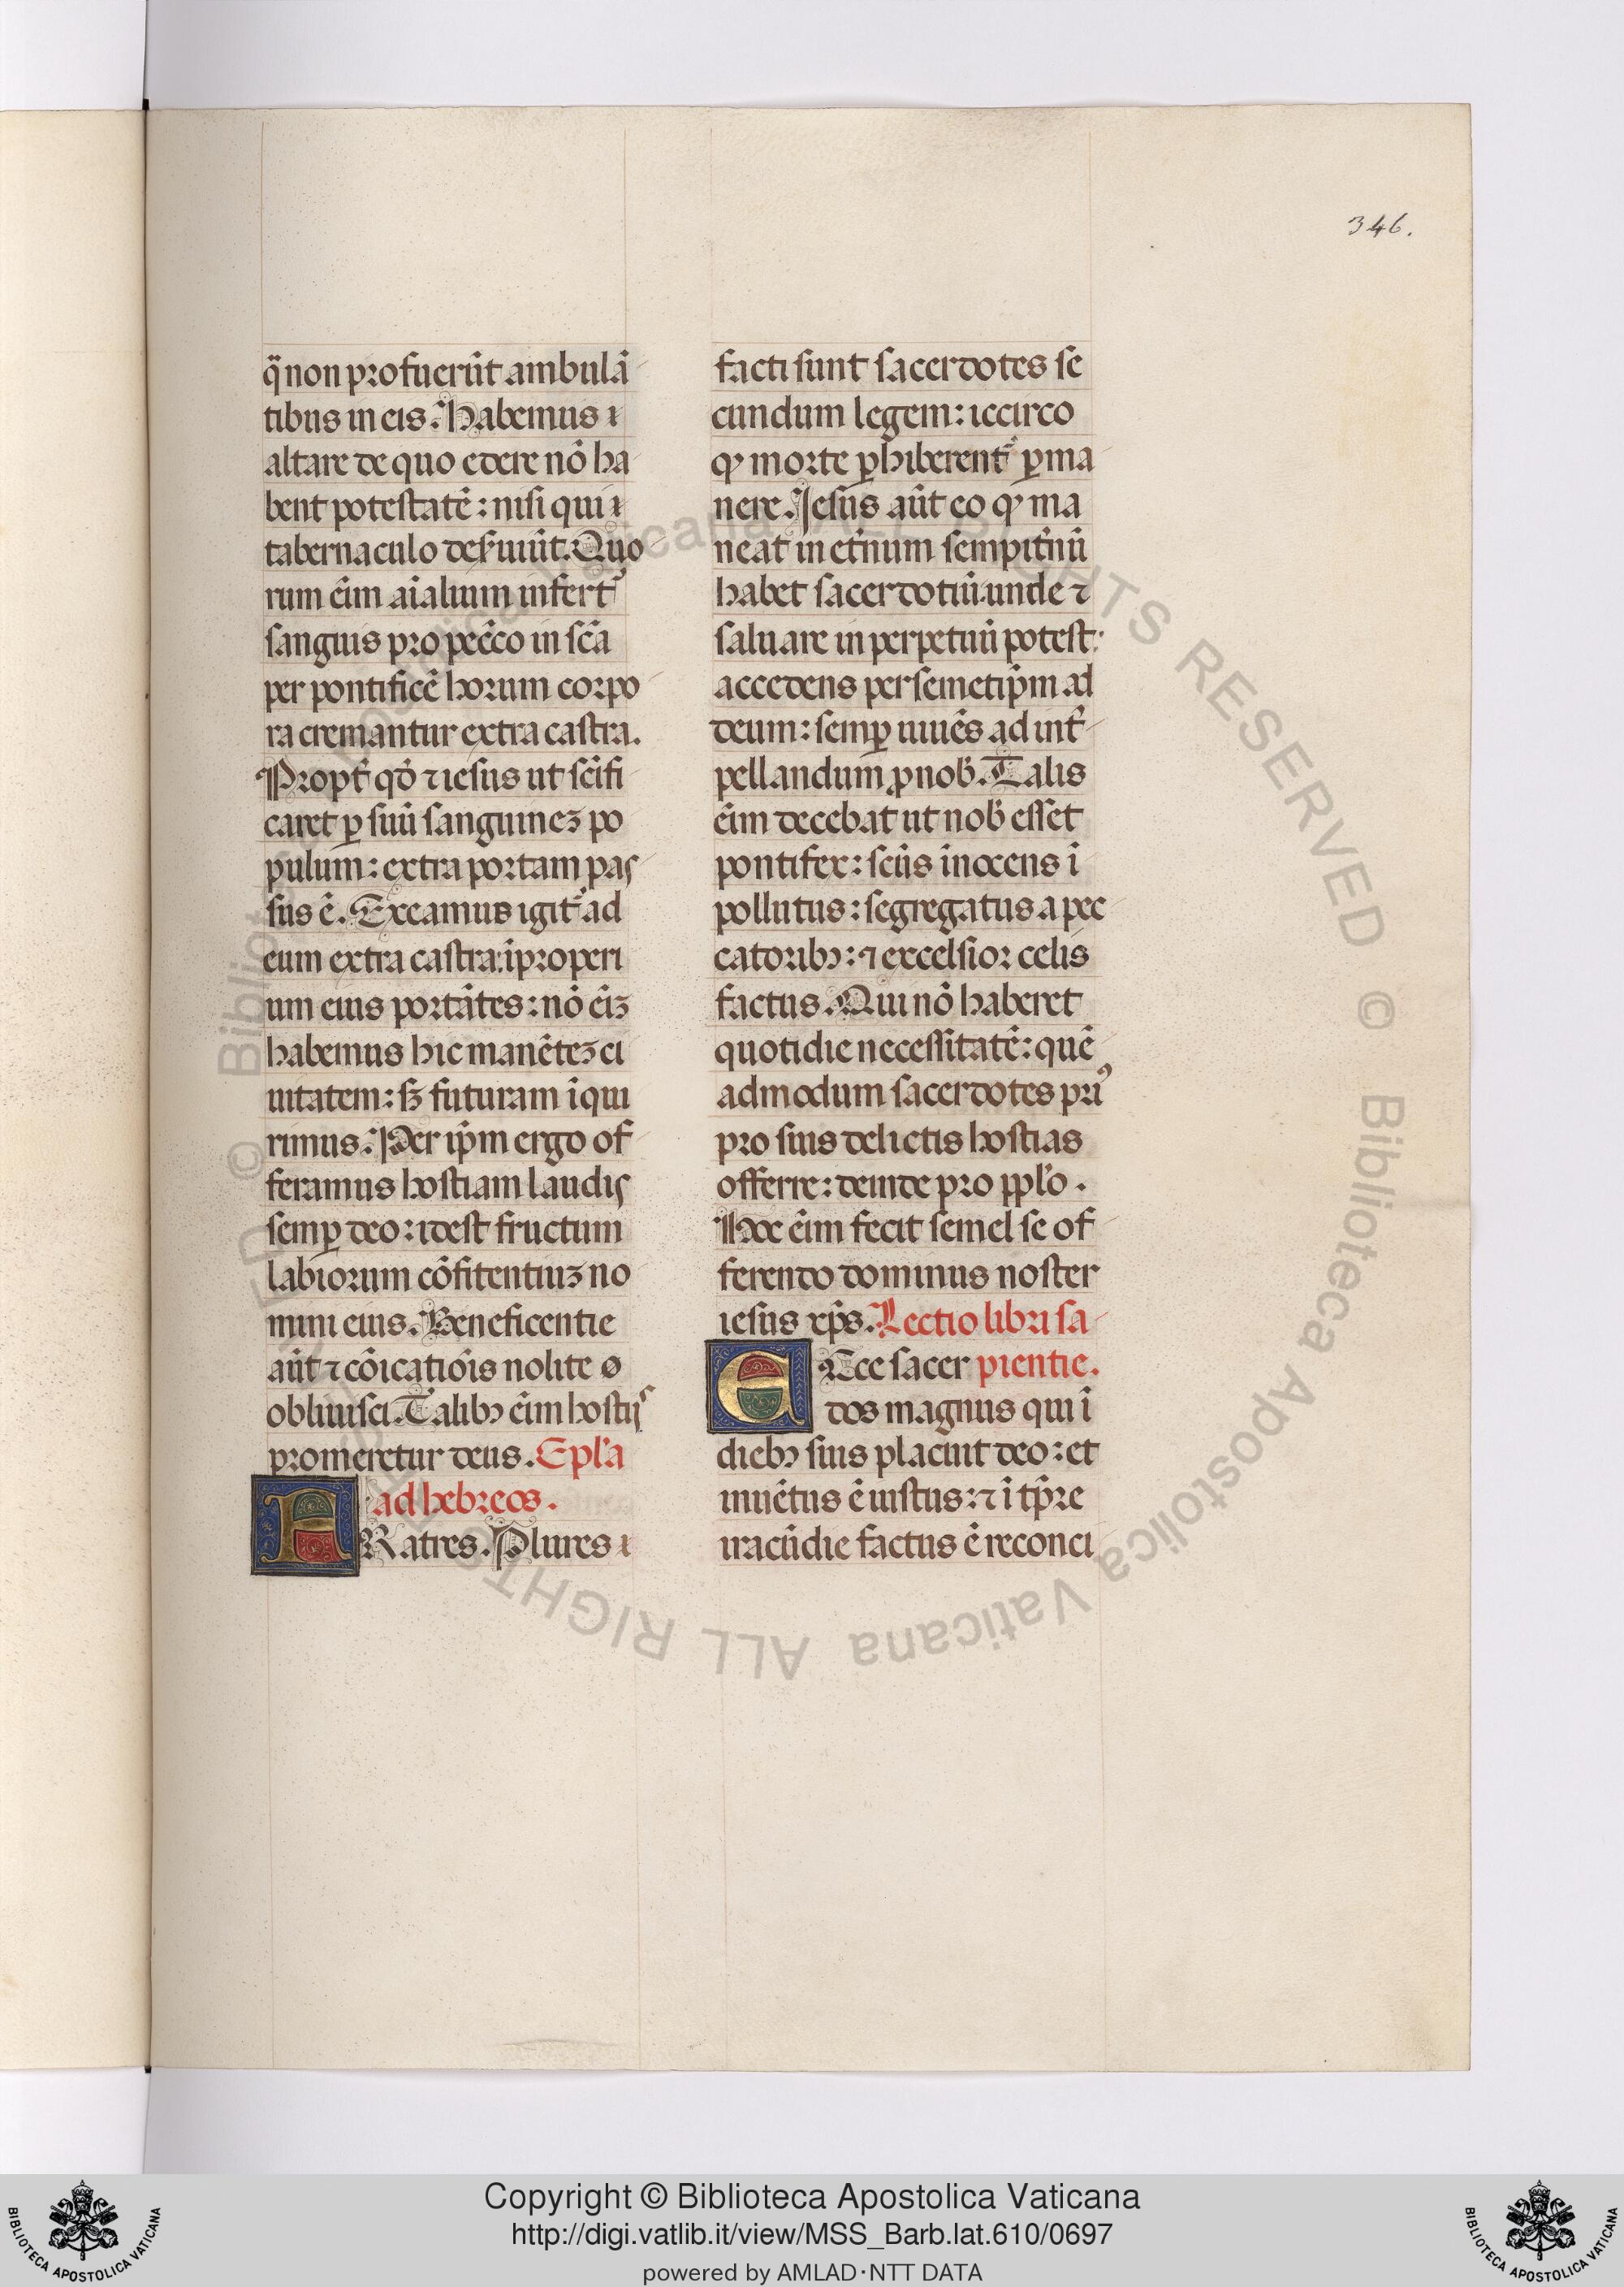 346.
q̈ non profuerūt ambulā
tibus in eis. Habemus ⁊
altare de quo edere nō ha
bent potestatē: nisi qui ı
tabernaculo des̕uiūt. Quo
rum eīm aīalium infert᷑
sanguis pro pecc̄o in sc̄a
per pontificē horum corpo
ra cremantur extra castra.
Propt̕ qđ ⁊ iesus ut sc̄ifi
caret ꝑ suū sanguineꝫ po
pulum: extra portam pas
sus ē. Exeamus igit᷑ ad
eum extra castra: īproperi
um eius portātes: nō eīꝫ
habemus hic manēteꝫ ci
uitatem: sꝫ futuram īqui
rimus. Per ip̄m ergo of
feramus hostiam laudis
semꝑ deo: idest fructum
labiorum cōfitentiuꝫ no
mini eius. Beneficentie
aūt ⁊ cōicatiōis nolite ø
obliuisci. Talibꝫ eīm hostijs
promeretur deus. Epl̄a
ad hebreos.
FRatres. Plures ı
facti sunt sacerdotes se
cundum legem: iccirco
ꝙ morte ꝓhiberent᷑ ꝑma
nere. Jesus aūt eo ꝙ ma
neat in et̕num sempit̕nū
habet sacerdotiū. unde ⁊
saluare in perpetuū potest:
accedens per semetip̄m ad
deum: semꝑ uiuēs ad int̕
pellandum ꝓ nob̕. Talis
eīm decebat ut nob̕ esset
pontifex: sc̄us īnocens ī
pollutus: segregatus a pec
catoribꝫ: ⁊ excelsior celis
factus. Qui nō haberet
quotidie necessitatē: quē
admodum sacerdotes priꝰ
pro suis delictis hostias
offerre: deinde pro ppl̄o.
Hoc eīm fecit semel se of
ferendo dominus noster
iesus xp̄s. Lectio libri sa
ECce sacer pientie.
dos magnus qui ī
diebꝫ suis placuit deo: et
inuētus ē iustus: ⁊ ī tp̄re
iracūdie factus ē reconci
© Biblioteca Apostolica Vaticana ALL RIGHTS RESERVED © Biblioteca Apostolica Vaticana ALL RIGHTS RESERVED
BIBLIOTECA APOSTOLICA VATICANA
Copyright © Biblioteca Apostolica Vaticana
http://digi.vatlib.it/view/MSS_Barb.lat.610/0697
powered by AMLAD·NTT DATA
BIBLIOTECA APOSTOLICA VATICANA